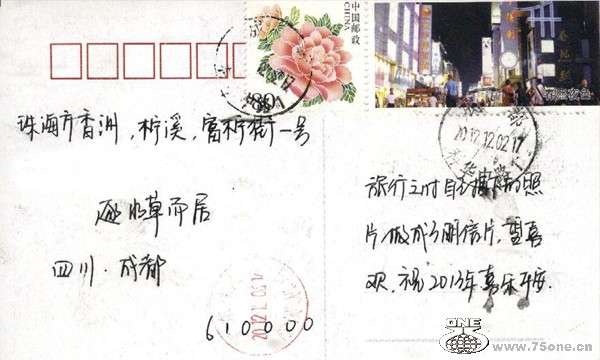 中国邮政
CHINA
80
春熙夜色
珠海市香洲，柠溪，富柠街一号
逐水草而居
四川·成都
610000
2012.12.02.17
旅行之时自己拍摄的照
片做成了明信片，望喜
欢，祝2013年喜乐平安.
ONE
www.75one.cn